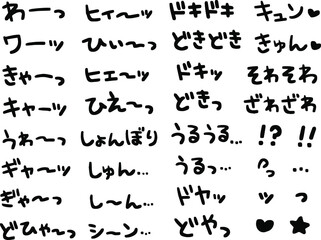 わーっ ヒィ〜ッ ドキドキ キュン♥
ワーッ ひぃ〜っ どきどき きゅん♥
きゃーっ ヒェ〜ッ ドキッ そわそわ
キャーッ ひえ〜っ どきっ ざわざわ
うわ〜っ しょんぼり うるうる… !? !!
ギャ〜ッ しゅん… うるっ… っ …
ぎゃ〜っ し〜ん… ドヤッ ッ っ
どひゃ〜っ シーン… どやっ ♥ ★